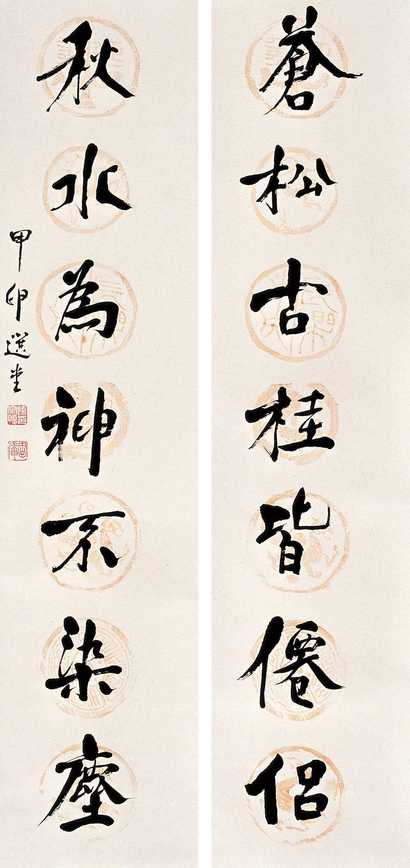 蒼松古桂皆僊侶
秋水為神不染塵
選堂